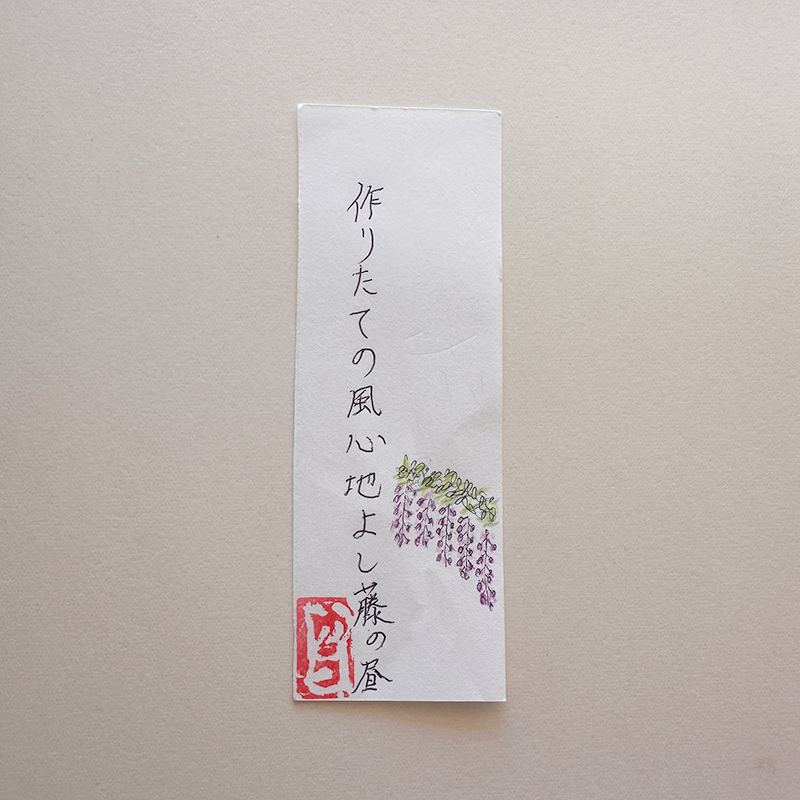 作りたての風心地よし藤の昼